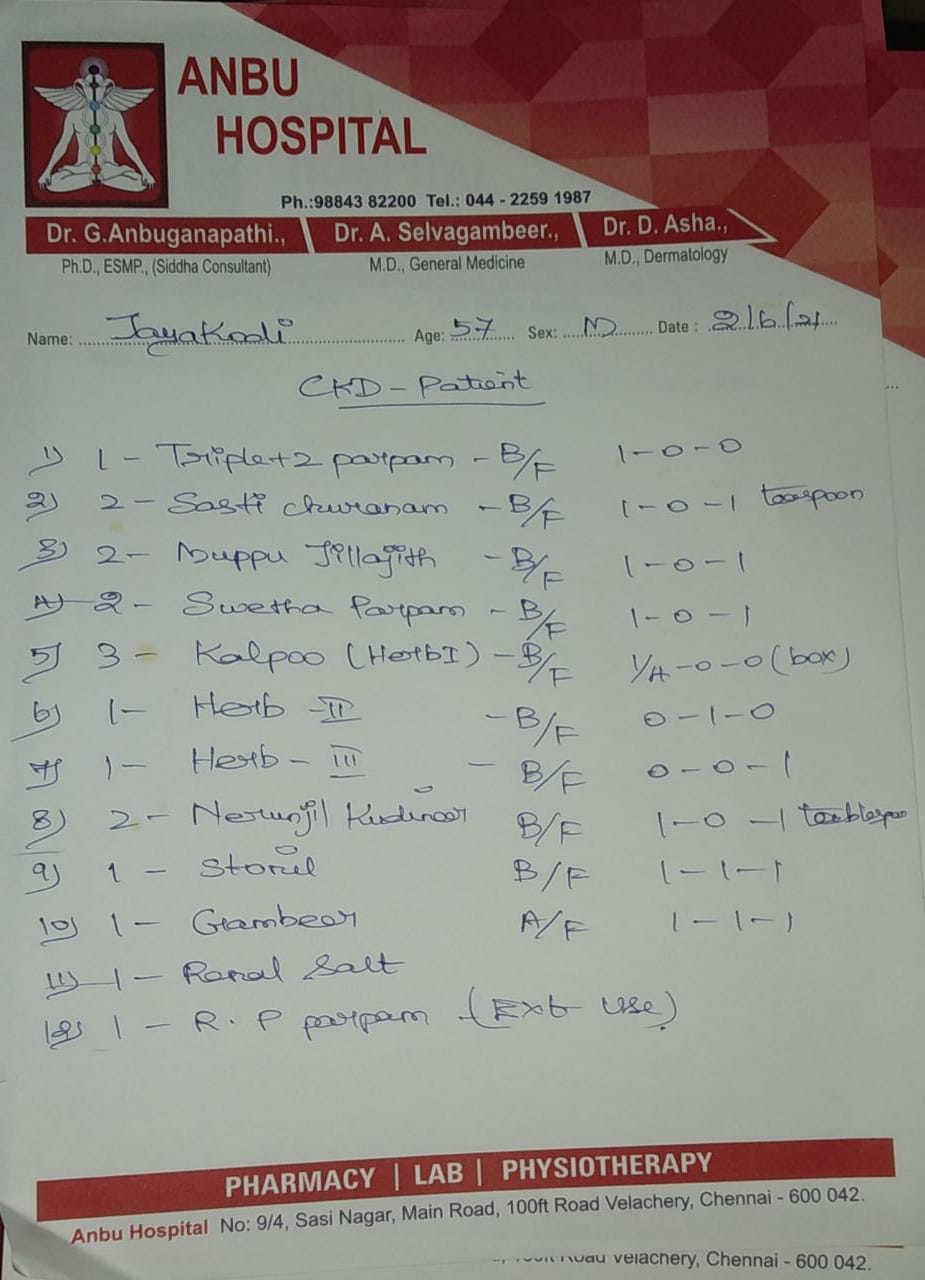 ANBU
HOSPITAL
Ph.:98843 82200 Tel.: 044 - 2259 1987
Dr. G.Anbuganapathi., Dr. A. Selvagambeer., Dr. D. Asha.,
Ph.D., ESMP., (Siddha Consultant) M.D., General Medicine M.D., Dermatology
Name: JayaKodi Age: 57 Sex: M Date : 2/6/21
CKD - Patient
1) 1 - Triplet2 parpam - B/F 1-0-0
2) 2 - Sasti churanam - B/F 1-0-1 teaspoon
3) 2 - Muppu Jillajith - B/F 1-0-1
4) 2 - Swetha Parpam - B/F 1-0-1
5) 3 - Kalpoo (Herb I) - B/F 1/4-0-0 (box)
6) 1 - Herb - II - B/F 0-1-0
7) 1 - Herb - III - B/F 0-0-1
8) 2 - Nerunjil Kudineer B/F 1-0-1
9) 1 - B/F 1-1-1
10) 1 - Gambeer A/F 1-1-1
11) 1 - Renal Salt
12) 1 - R. P parpam (Ext use)
PHARMACY | LAB | PHYSIOTHERAPY
Anbu Hospital No: 9/4, Sasi Nagar, Main Road, 100ft Road Velachery, Chennai - 600 042.
Road Velachery, Chennai - 600 042.